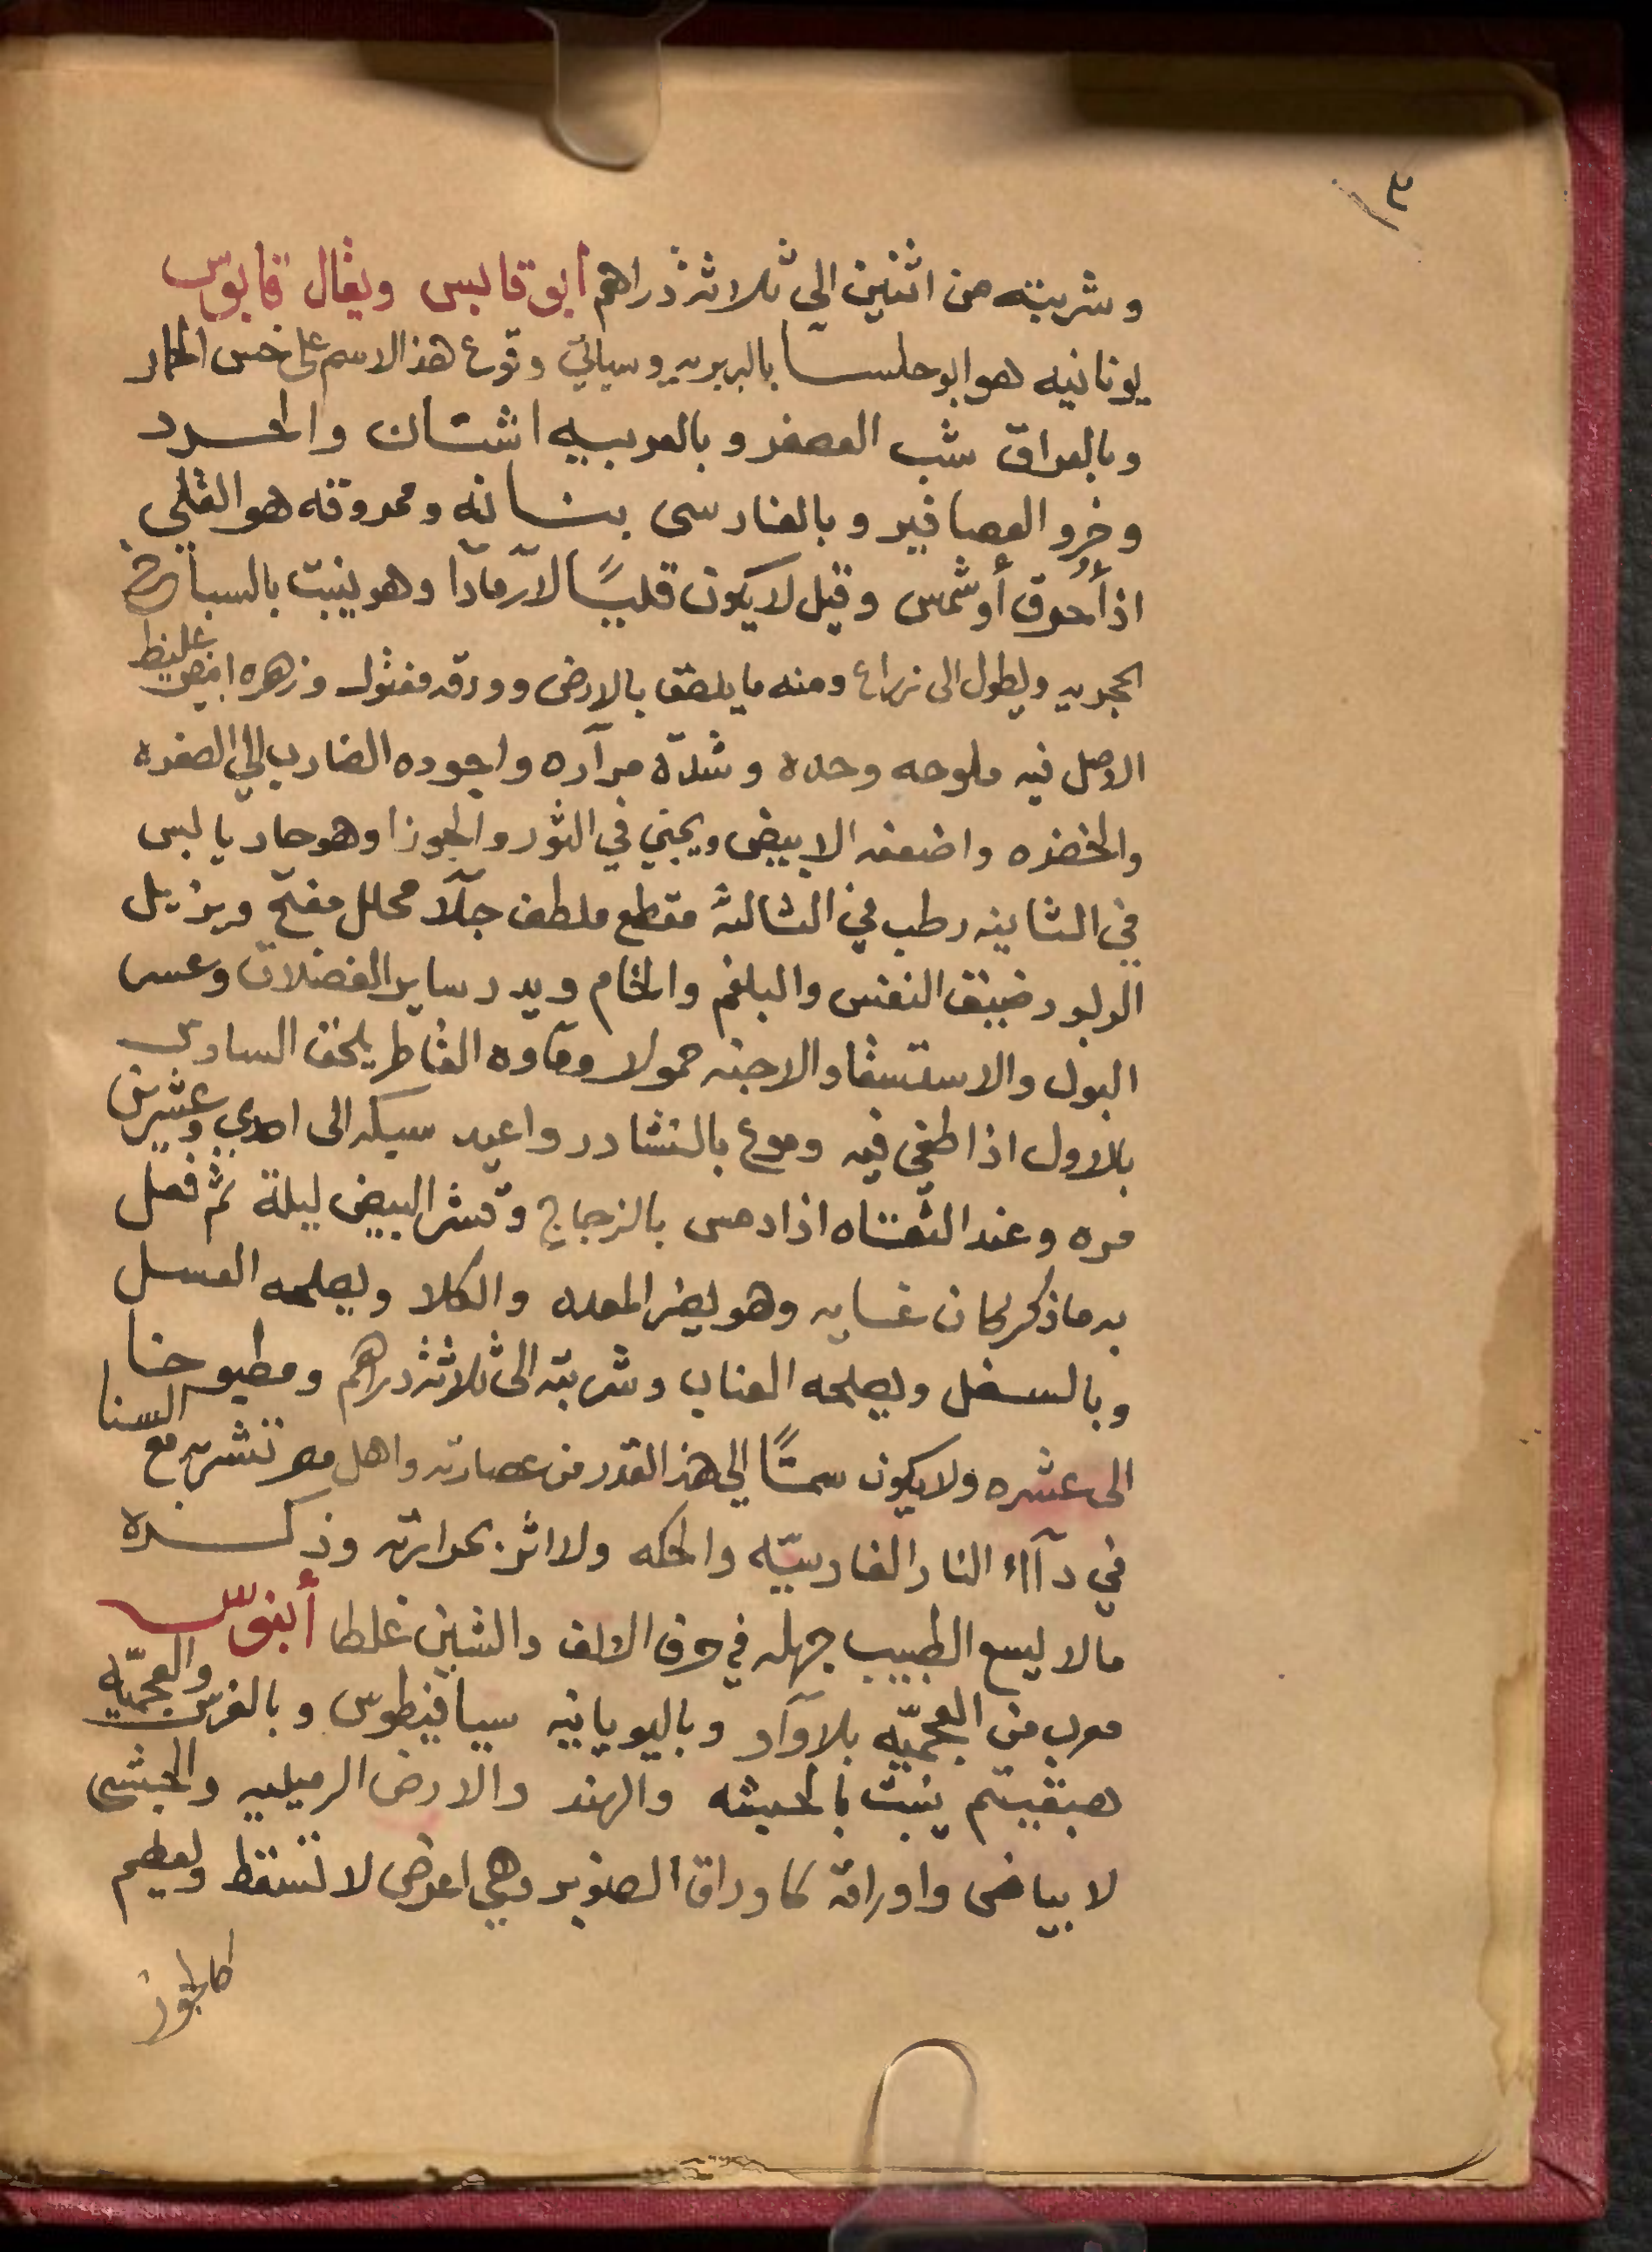 ٣
وشربته من اثنين الي ثلاثة دراهم أبو قابس ويقال قابوس
يونانيه هو ابو حلسا بالبربريه وسياتي وقوع هذا الاسم على خس الحمار
وبالعراق شب العصفر وبالعربيه اشنان والحرد
وخرو العصافير وبالفارسى بناانه ومحروقه هو القلي
اذا أحرق أو شمس وقيل لا يكون قليًا الا رمادا وهو ينبت بالسباخ
الحجريه ويطول الى ذراع ومنه ما يلصق بالارض وورقه مفتول وزهره ابيض غليظ
الاصل فيه ملوحه وحده وشدّة مرآره واجوده الضارب الي الصفره
والخضره واضعفه الابيض ويجني في الثور والجوزا وهو حار يابس
في الثانيه رطب في الثالثه مقطع ملطف جلّا محلل مفتح ويزيل
الربو وضيق النفس والبلغم والخام ويدر ساير الفضلات وعسر
البول والاستسقا والاجنه حمولا وماوه القاطر يلحق السادس
بالاول اذا طفى فيه ومع بالنشادر واعيد سبكه الى احدي وعشرين
مره وعند الثقاه اذا دمس بالزجاج وقشر البيض ليلة ثم فعل
به ما ذكر كان غايه وهو يضر المعده والكلا ويصلحه العسل
وبالسفل ويصلحه العناب وشربته الى ثلاثة دراهم ومطبوخا
الى عشره ولا يكون سمًّا الي هذا القدر من عصارته واهل مصر تشربه مع السنا
في دآاء النار الفارسيّه والحكه ولا اثر بحرارته وذكره
مالا يسع الطبيب جهله في حرف الالف والشين غلطا أبنوس
معرب من العجميّه بلا وآو وباليويانيه سيافيطوس وبالفرس والعجميّه
هبقبيتم ينبت بالحبشه والهند والارض الرميليه والحبشى
لا بياض واوراقه كاوراق الصنوبر وهي اعرض لا تسقط ولعظيم
كالجوز